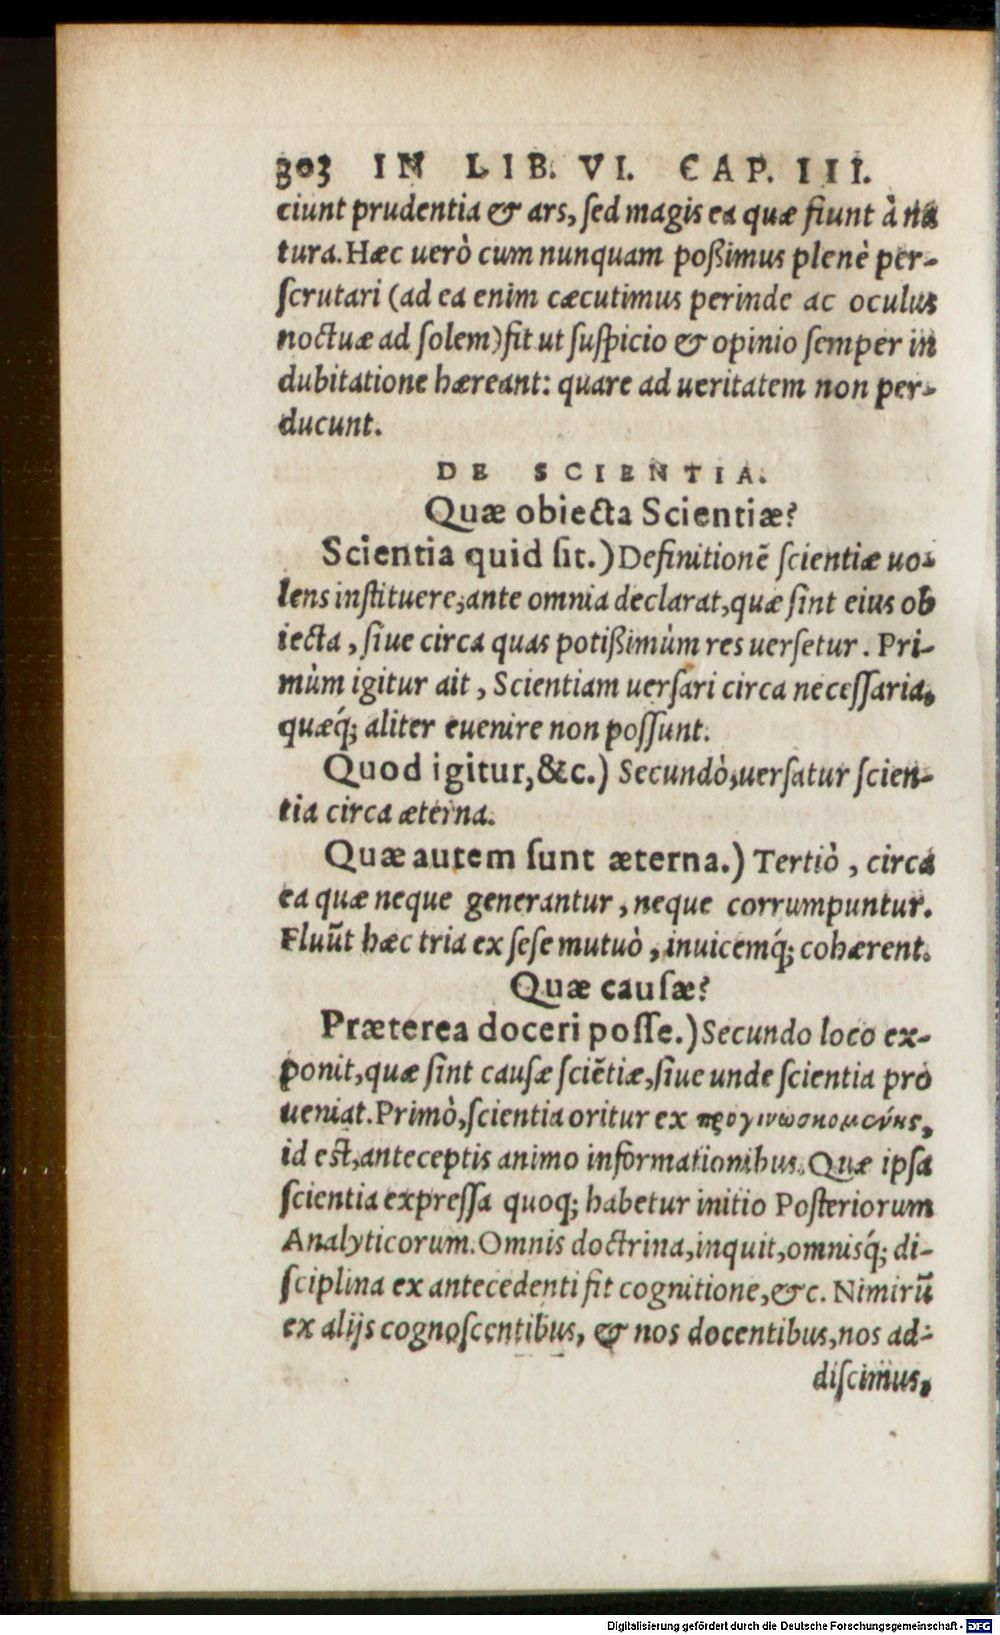 303 IN LIB. VI. CAP. III.
ciunt prudentia & ars, ſed magis ea quæ fiunt à na
tura. Hæc uerò cum nunquam poßimus plenè per-
ſcrutari (ad ea enim cæcutimus perinde ac oculus
noctuæ ad ſolem) fit ut ſuſpicio & opinio ſemper in
dubitatione hæreant: quare ad ueritatem non per-
ducunt.
DE SCIENTIA.
Quæ obiecta Scientiæ?
Scientia quid ſit.) Definitionē ſcientiæ uo-
lens inſtituere, ante omnia declarat, quæ ſint eius ob
iecta, ſiue circa quas potißimùm res uerſetur. Pri-
mùm igitur ait, Scientiam uerſari circa neceſſaria,
quæq́; aliter euenire non poſſunt.
Quod igitur, &c.) Secundò, uerſatur ſcien-
tia circa æterna.
Quæ autem ſunt æterna.) Tertiò, circa
ea quæ neque generantur, neque corrumpuntur.
Fluūt hæc tria ex ſeſe mutuò, inuicemq́; cohærent.
Quæ cauſæ?
Præterea doceri poſſe.) Secundo loco ex-
ponit, quæ ſint cauſæ ſciētiæ, ſiue unde ſcientia pro
ueniat. Primò, ſcientia oritur ex προγινωσκομένης,
id eſt, anteceptis animo informationibus. Quæ ipſa
ſcientia expreſſa quoq; habetur initio Poſteriorum
Analyticorum. Omnis doctrina, inquit, omnisq́; di-
ſciplina ex antecedenti fit cognitione, &c. Nimirū
ex alijs cognoſcentibus, & nos docentibus, nos ad-
diſcimus,
Digitalisierung gefördert durch die Deutsche Forschungsgemeinschaft - DFG